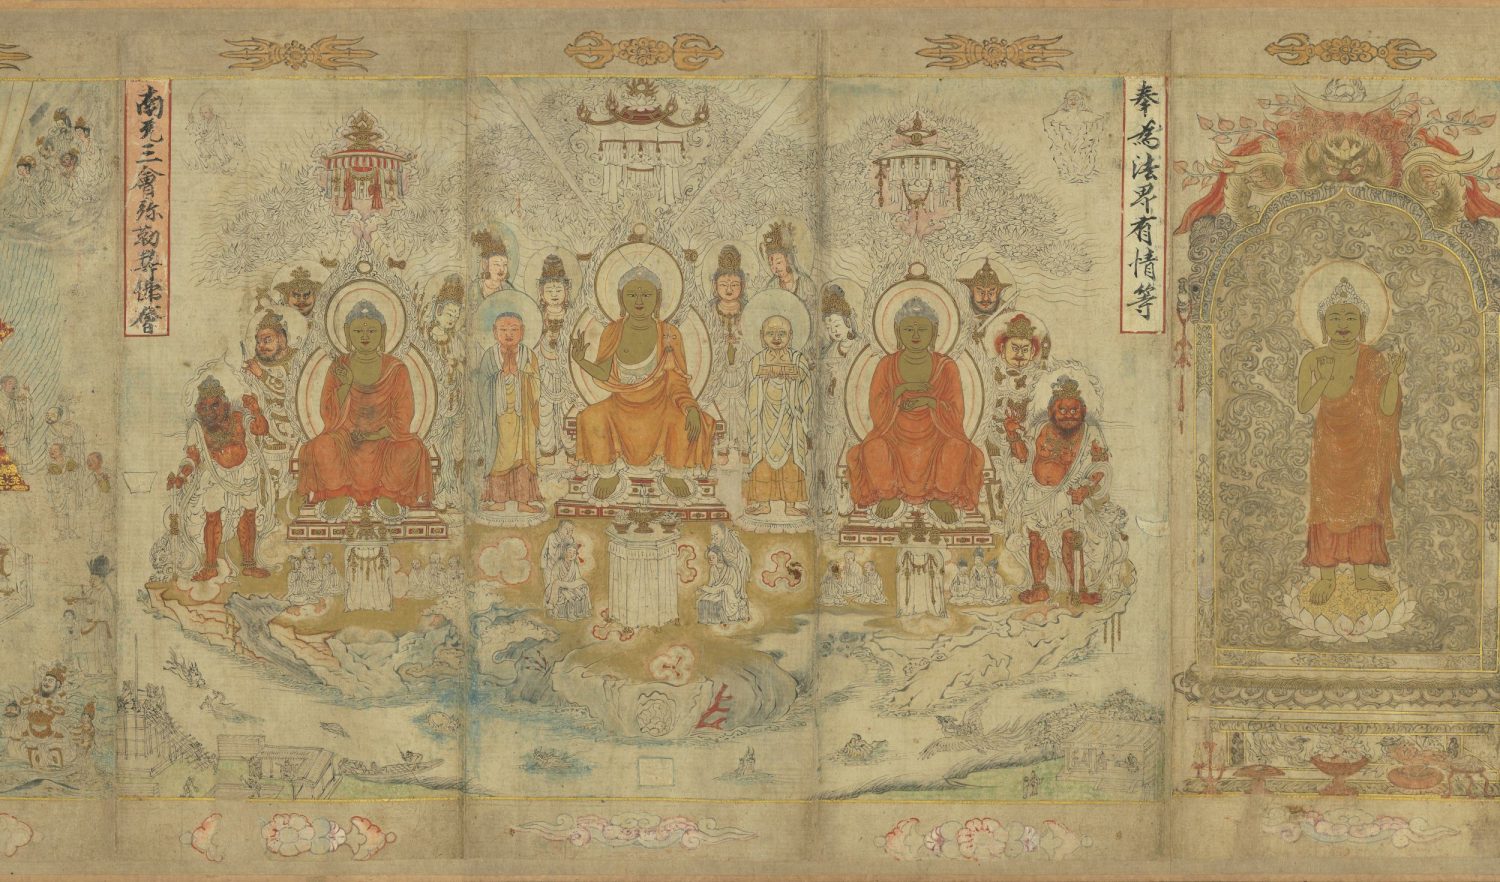 奉為法界有情等
南无三會弥勒尊佛會